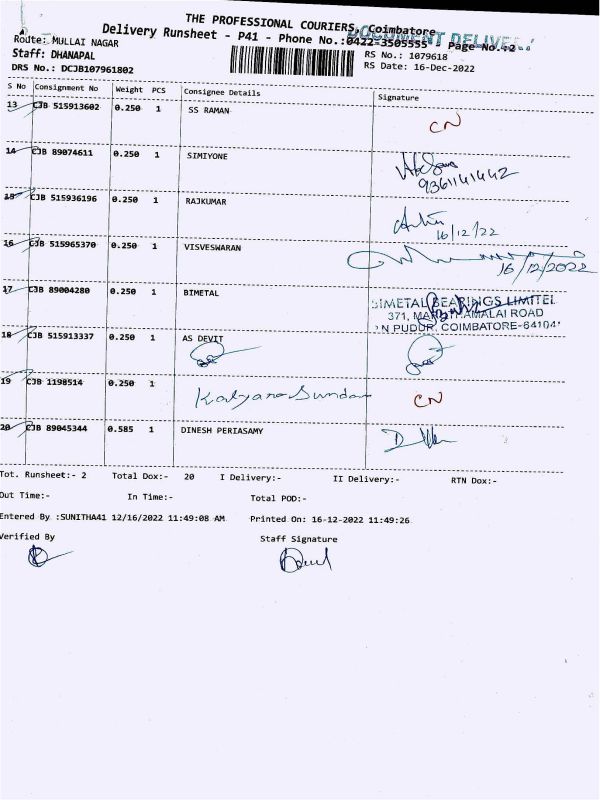 THE PROFESSIONAL COURIERS, Coimbatore
DOCUMENT DELIVE
Delivery Runsheet - P41 - Phone No.:0422-3505555 - Page No.:2
Route: MULLAI NAGAR
RS No.: 1079618
Staff: DHANAPAL
RS Date: 16-Dec-2022
DRS No.: DCJB107961802
S No Consignment No Weight PCS Consignee Details Signature
13 CJB 515913602 0.250 1 SS RAMAN CN
14 CJB 89074611 0.250 1 SIMIYONE
9361141442
15 CJB 515936196 0.250 1 RAJKUMAR
16/12/22
16 CJB 515965370 0.250 1 VISVESWARAN
16/12/2022
17 CJB 89004280 0.250 1 BIMETAL
BIMETAL BEARINGS LIMITE
371, MALAI ROAD
N PUDUR, COIMBATORE-64104
18 CJB 515913337 0.250 1 AS DEVIT
19 CJB 1198514 0.250 1 Kalyana Sundar CN
20 CJB 89045344 0.585 1 DINESH PERIASAMY
Tot. Runsheet:- 2 Total Dox:- 20 I Delivery:- II Delivery:- RTN Dox:-
Out Time:- In Time:- Total POD:-
Entered By :SUNITHA41 12/16/2022 11:49:08 AM Printed On: 16-12-2022 11:49:26
Verified By Staff Signature